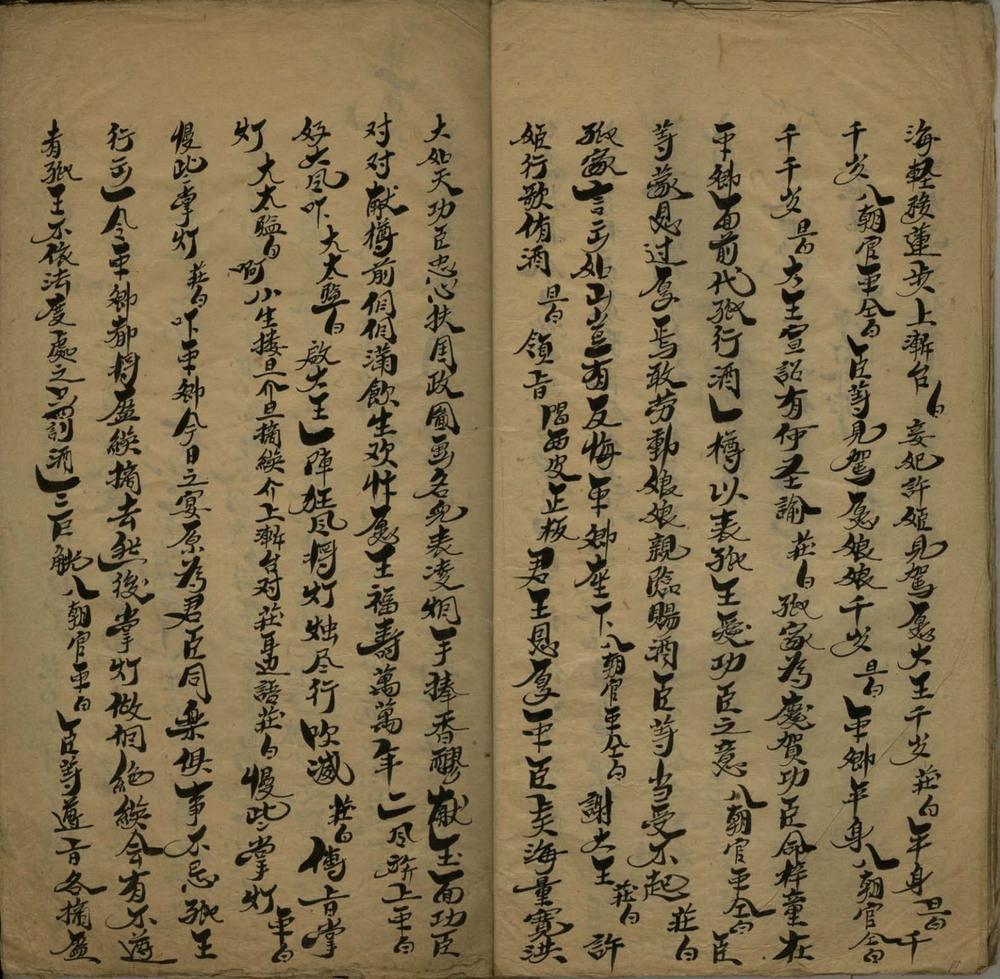 海輕移蓮步上漸台 白 妾妃許姬見駕愿大王千岁 莊白 平身 旦白 千
千岁 八朝官平仝白 臣等見駕愿娘娘千岁 旦白 平卿平身 八朝官仝白
千千岁 旦白 大王宣詔有何圣諭 莊白 孤家為慶賀功臣命梓童在
平卿面前代孤行酒一樽以表孤王爱功臣之意 八朝官平仝白 臣
等蒙恩过厚焉敢劳動娘娘親臨賜酒臣等当受不起 莊白
孤家言出如山岂有反悔平卿座下 八朝官平仝白 謝大王 莊白 許
姬行歌侑酒 旦白 領旨 唱西皮正板 君王恩厚平臣夫海量寬洪
大如天功臣忠心扶国政圖画名兒表凌烟手捧香醪献玉面功臣
对对献樽前個個滿飲生欢忭愿王福壽萬萬年 二风旂上 平白
好大风吓 大太监白 啟大王一陣狂风将灯烛尽行吹滅 莊白 傳旨掌
灯 大太监白 啊 小生搂旦介旦摘緌介上漸台对莊耳边語 莊白 慢此掌灯 平白
慢此掌灯 莊白 吓平卿今日之宴原為君臣同樂俱事不忌孤王
行出一令平卿都将盔緌摘去然後掌灯做個絕緌会有不遵
者孤王不依法度處之只罰酒三巨觥 八朝官平白 臣等遵旨各摘盔